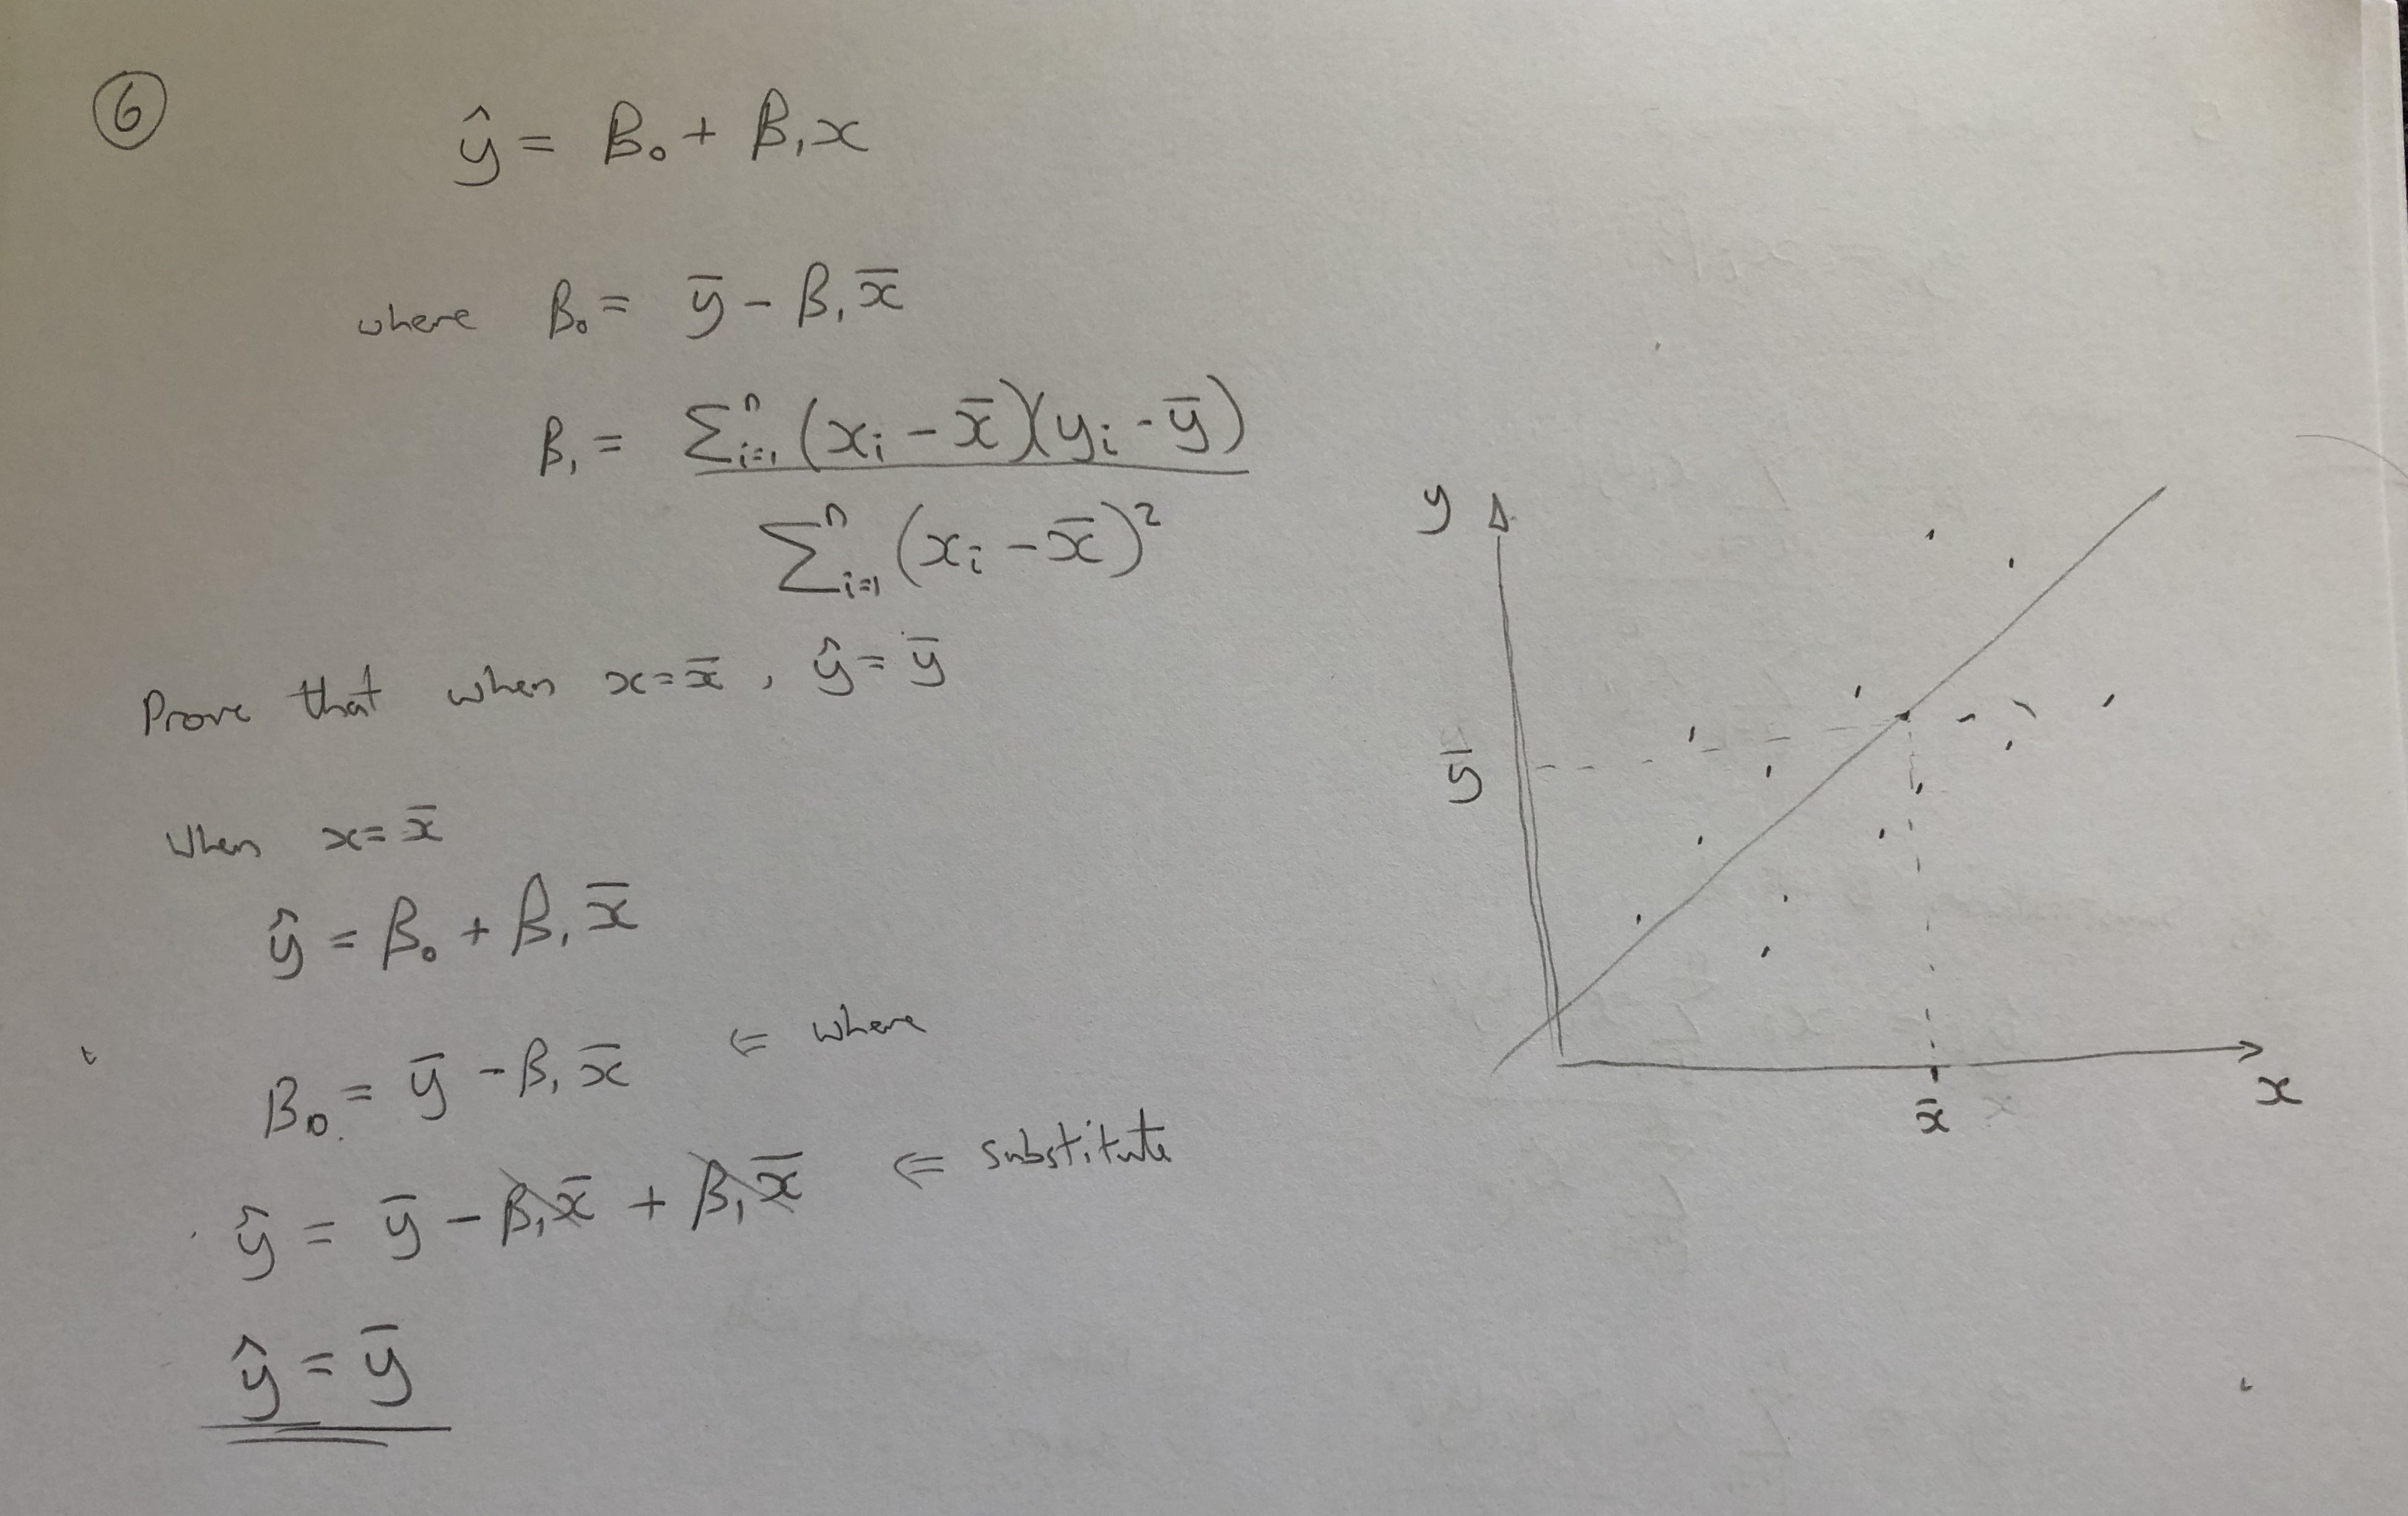 ⑥
ŷ = β₀ + β₁x
where β₀ = ȳ - β₁x̄
β₁ = Σⁿᵢ₌₁ (xᵢ - x̄)(yᵢ - ȳ)
Σⁿᵢ₌₁ (xᵢ - x̄)²
Prove that when x = x̄, ŷ = ȳ
When x = x̄
ŷ = β₀ + β₁x̄
β₀ = ȳ - β₁x̄ ⇐ where
ŷ = ȳ - β₁x̄ + β₁x̄ ⇐ substitute
ŷ = ȳ
y
ȳ
x̄
x